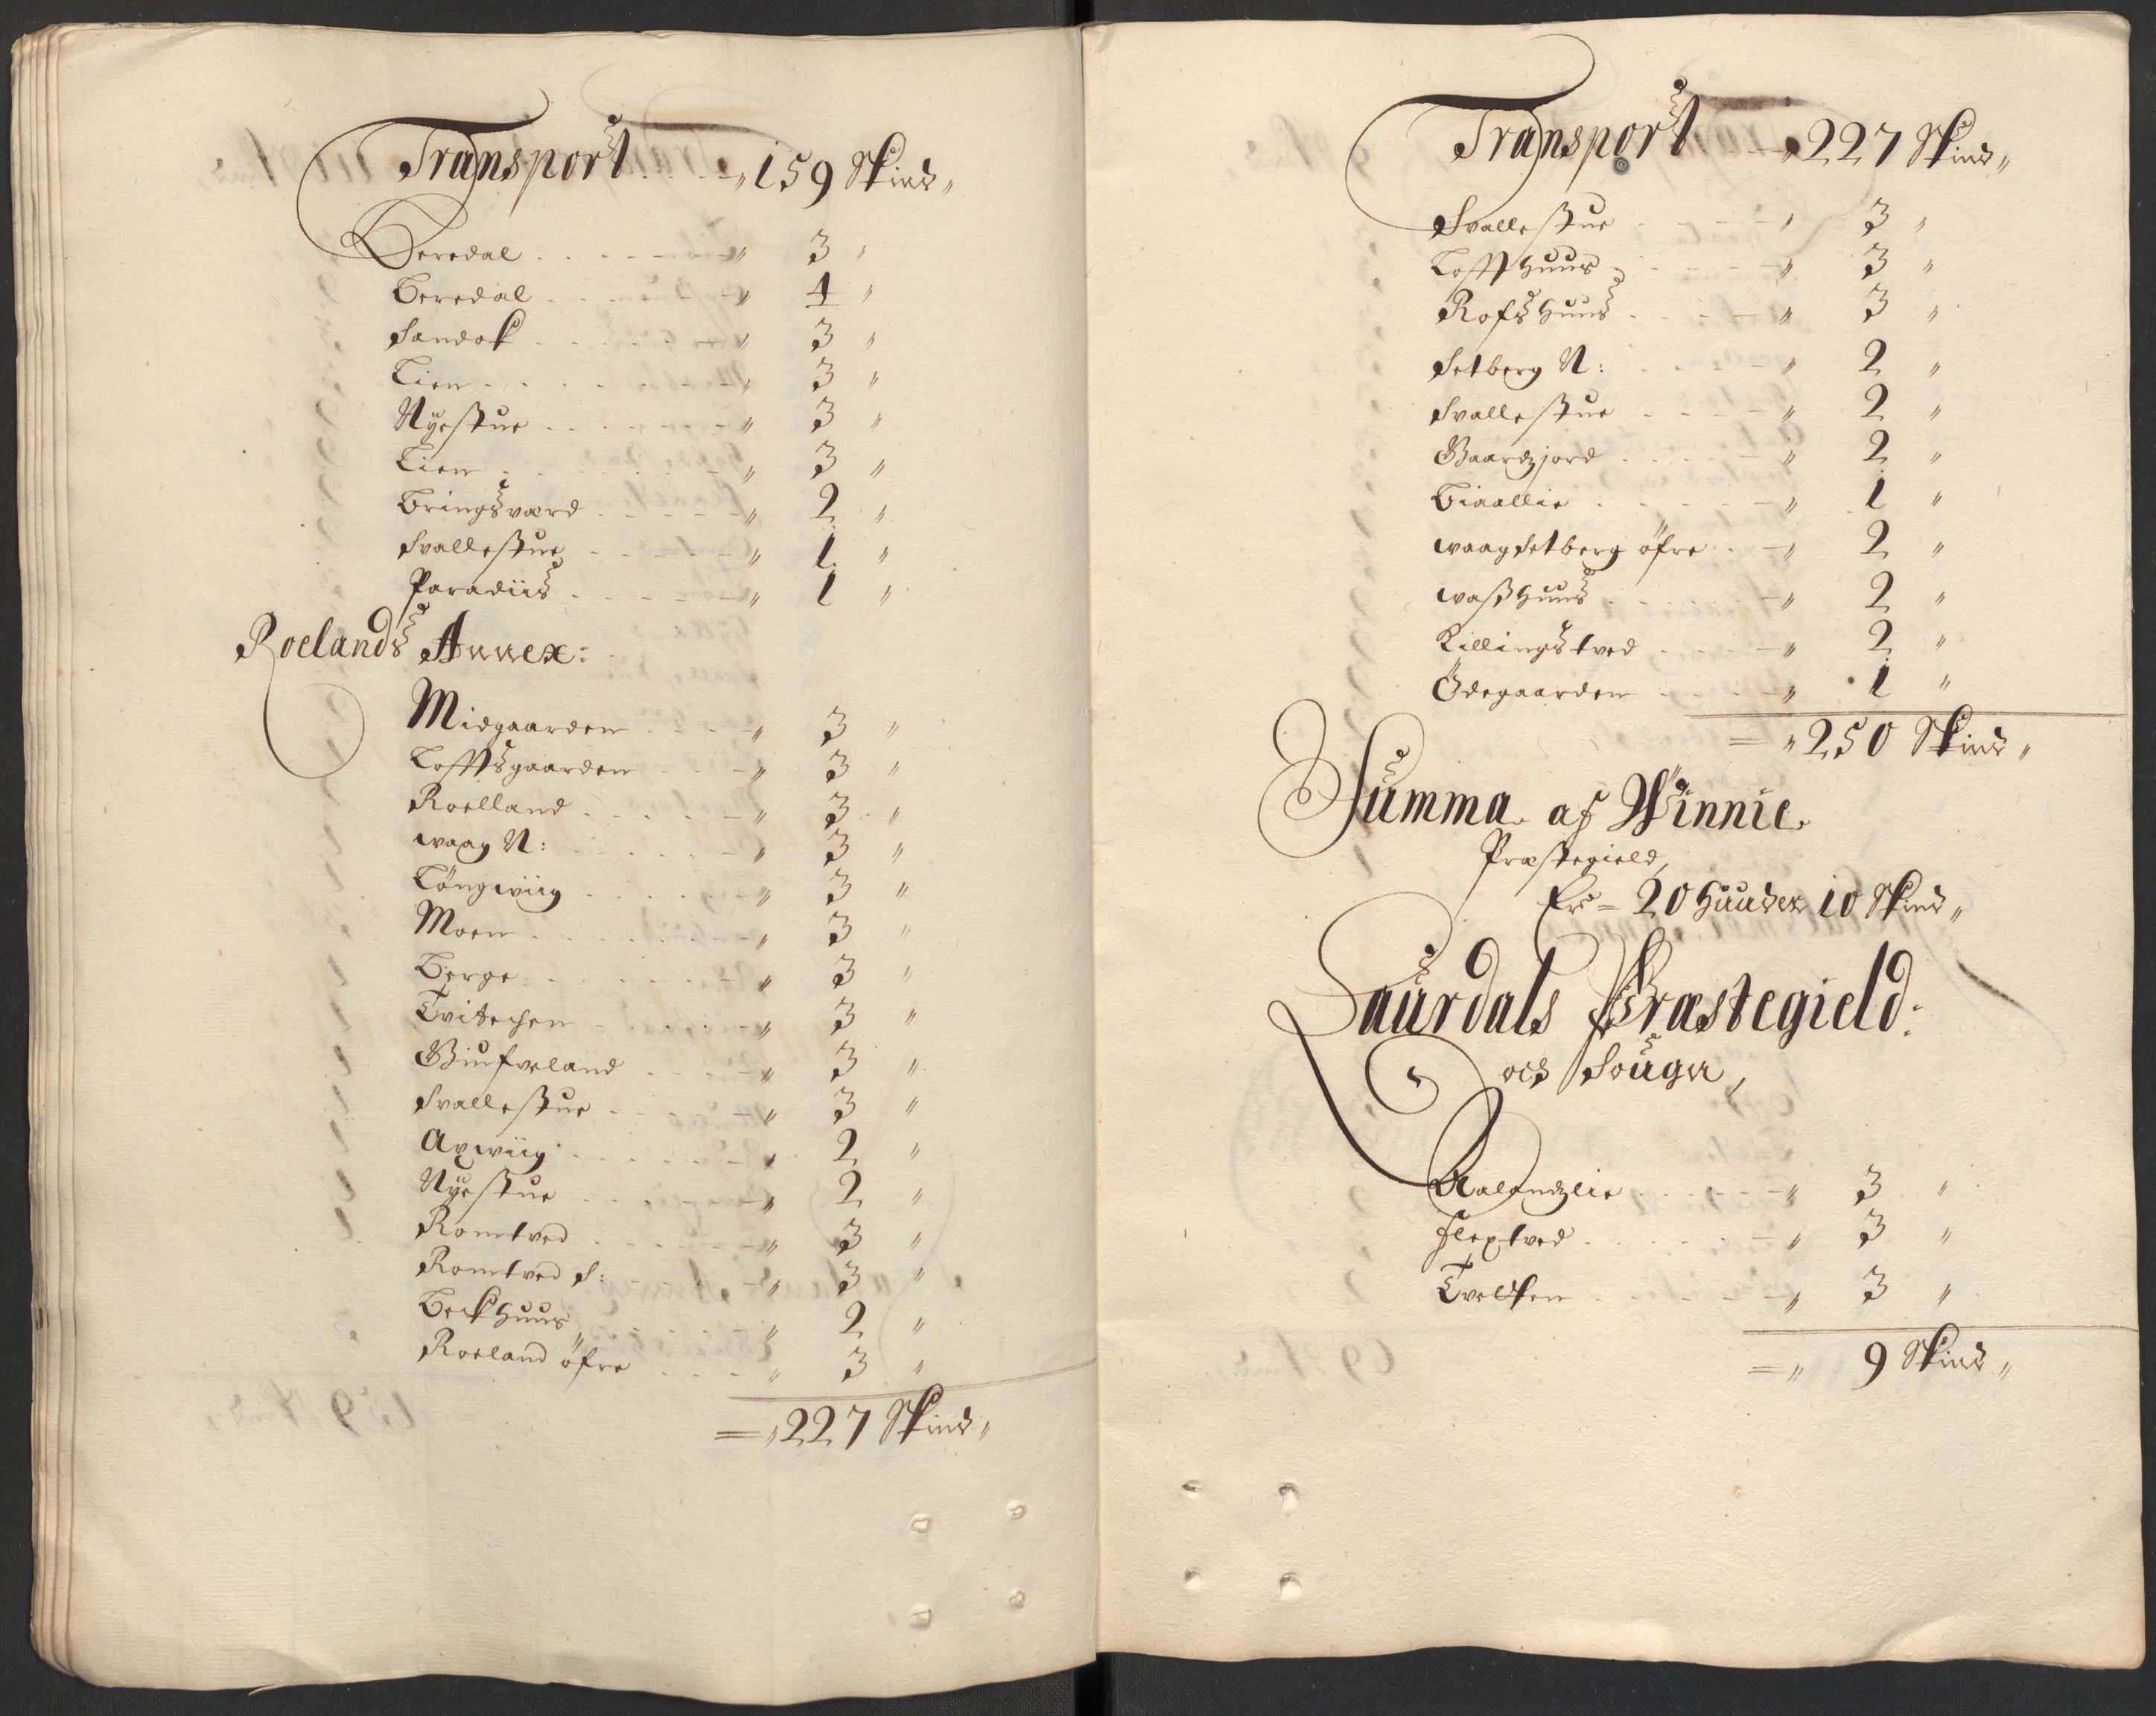 Transport . . . . „ 159 Skind „
Beredal . . . . . . „ 3 „
Beredal . . . . . . „ 4 „
Sandok . . . . . . „ 3 „
Lien . . . . . . „ 3 „
Nyestue . . . . . . „ 3 „
Lien . . . . . . „ 3 „
Bringsværd . . . . . . „ 2 „
Svallestue . . . . . . „ 1 „
Paradiis . . . . . . „ 1 „
Roelands Annex:
Midgaarden . . . . „ 3 „
Lofftsgaarden . . . . „ 3 „
Roelland . . . . . . „ 3 „
waag N: . . . . . . „ 3 „
Löngwiig . . . . . . „ 3 „
Moen . . . . . . „ 3 „
Berge . . . . . . „ 3 „
Tvitechen . . . . . . „ 3 „
Giufveland . . . . „ 3 „
Svallestue . . . . „ 3 „
Axwiig . . . . . . „ 2 „
Nyestue . . . . . . „ 2 „
Romtved . . . . . . „ 3 „
Romtved S: „ 3 „
Beckhuus . . . . . . „ 2 „
Roeland öfre . . . . „ 3 „
= „ 227 Skind „
Transport „ 227 Skind „
Svallestue . . . . „ 3 „
Loffthuus . . . . „ 3 „
Rofshuus . . . . „ 3 „
Setberg N: . . . . „ 2 „
Svallestue . . . . „ 2 „
Gaardzjord . . . . „ 2 „
Biaallie . . . . . . „ 1 „
waagsetberg öfre . . „ 2 „
washuus . . . . . . „ 2 „
Killingstved . . . . „ 2 „
Ödegaarden . . . . „ 1 „
= „ 250 Skind „
Summa af Winnie
Præstegield,
Er = 20 Huuder 10 Skind „
Laurdals Præstegield:
och Sougn,
Aalandzlie . . . . . . „ 3 „
Flextved . . . . . . „ 3 „
Tveitten . . . . . . „ 3 „
= „ 9 Skind „